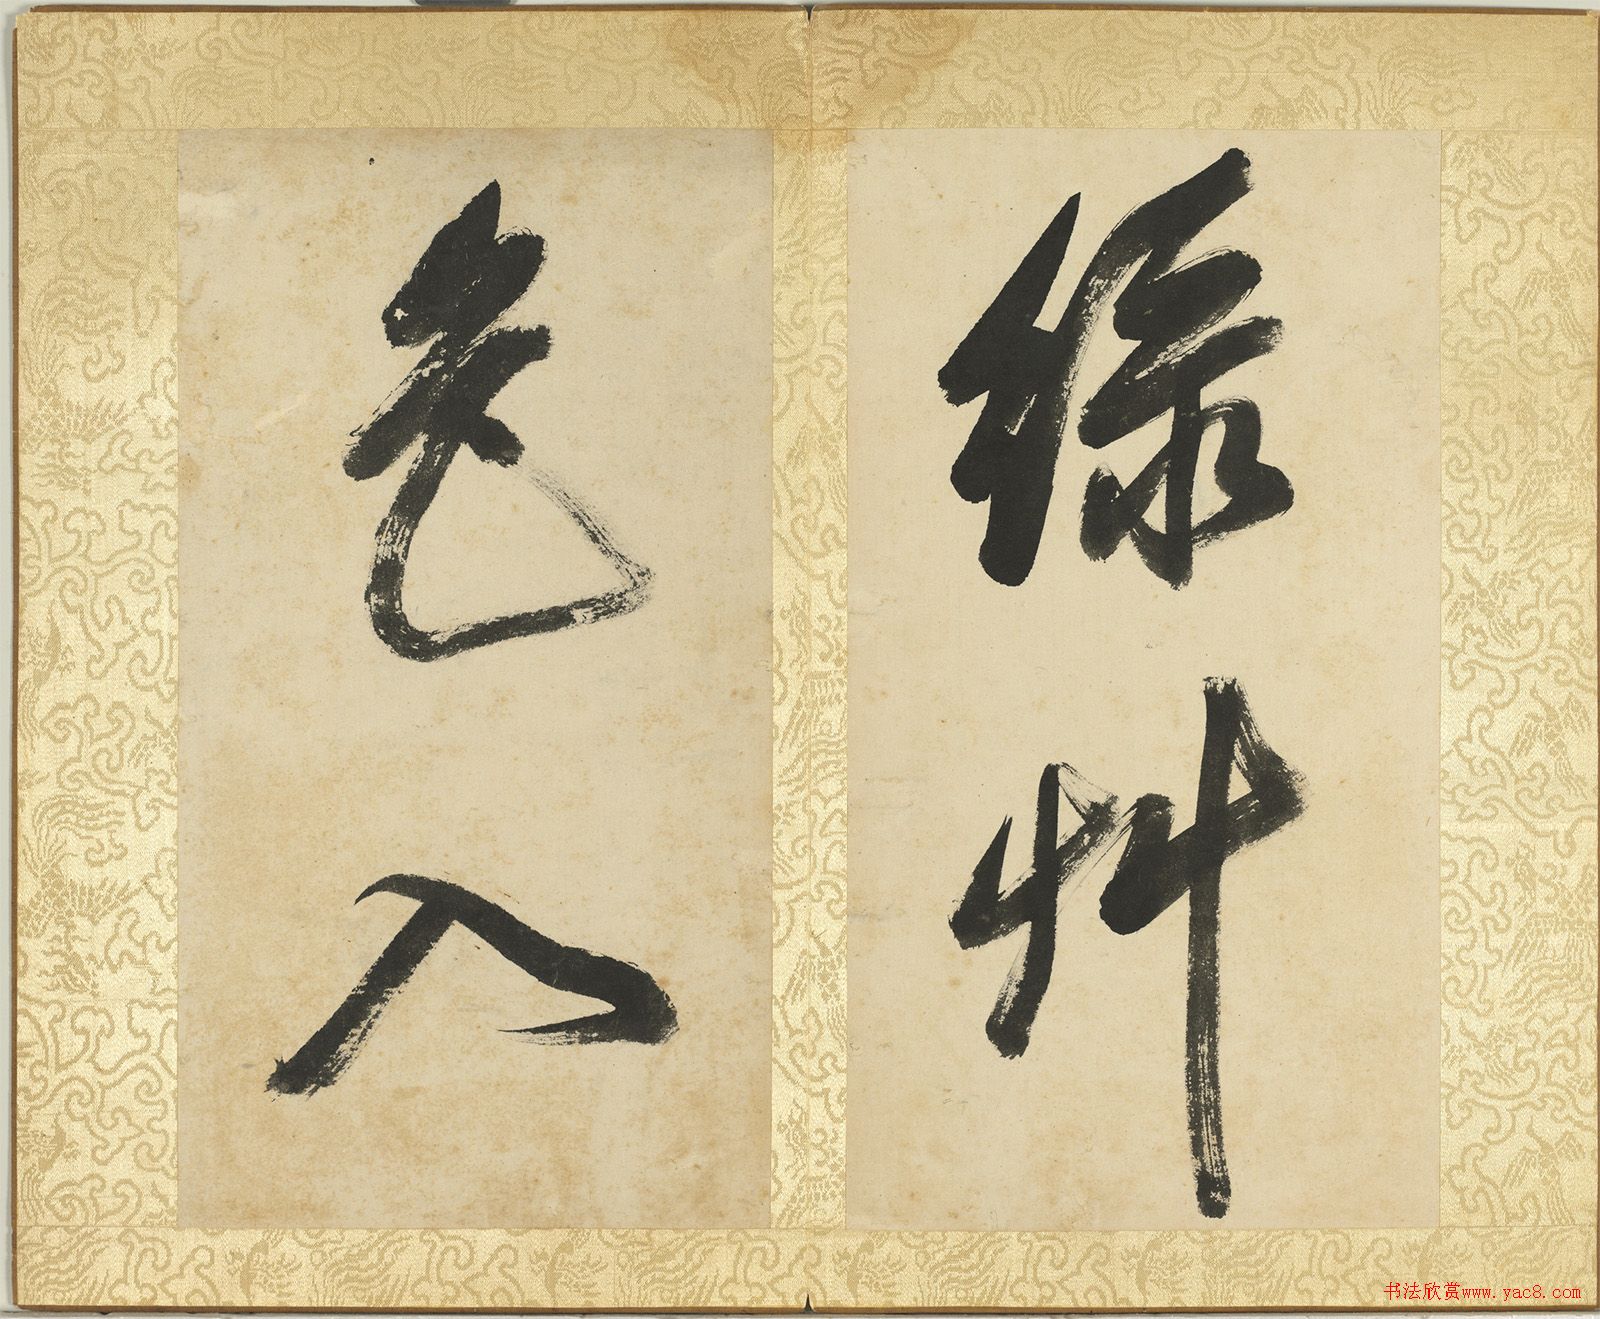 綠艸
色入
书法欣赏www.yac8.com